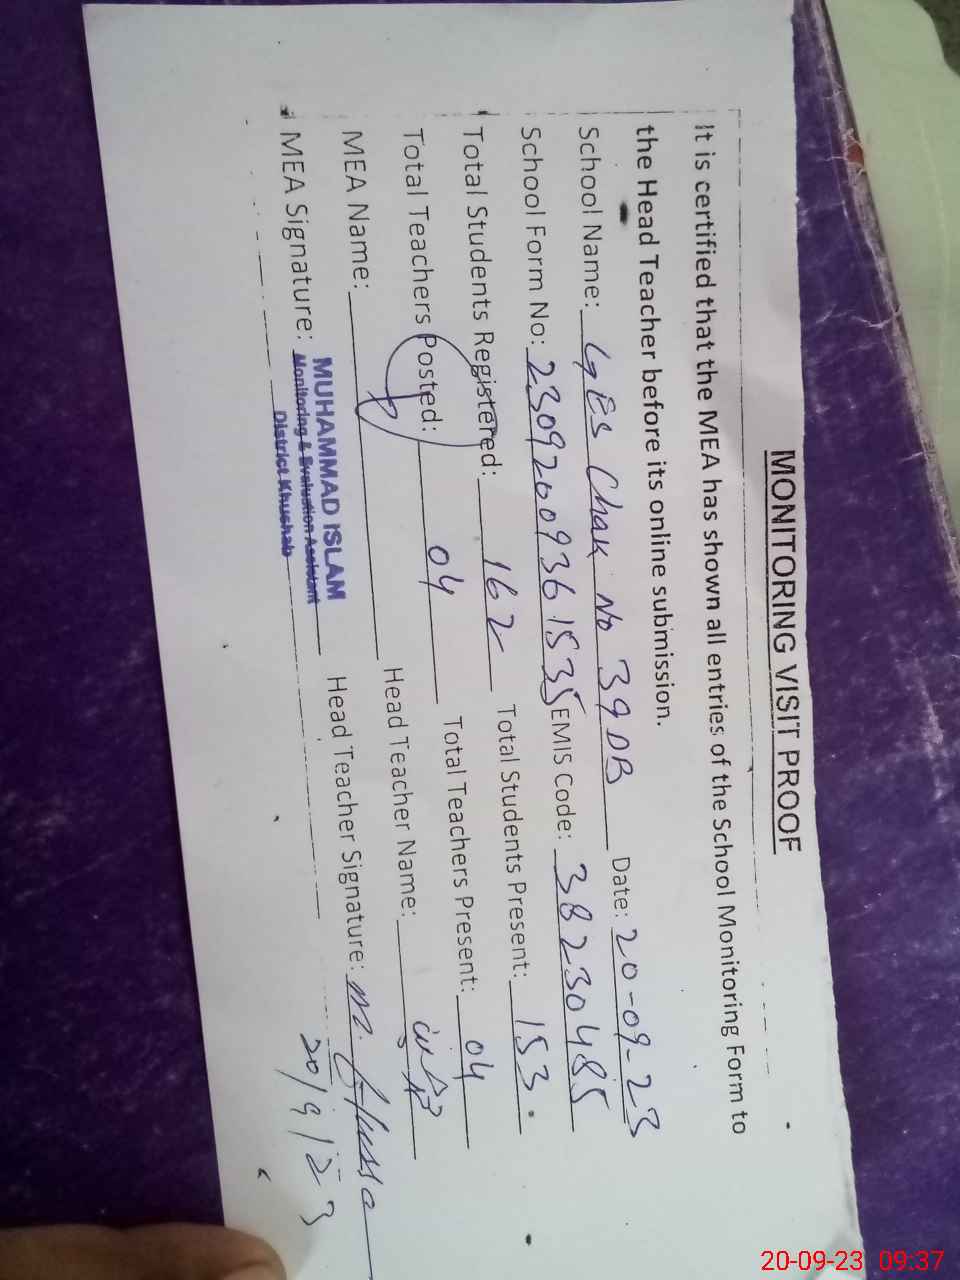 MONITORING VISIT PROOF
It is certified that the MEA has shown all entries of the School Monitoring Form to
the Head Teacher before its online submission.
School Name: GES Chak No 39DB Date: 20-09-23
School Form No: 2309200936 1535 EMIS Code: 38230485
Total Students Registered: 162 Total Students Present: 153
Total Teachers Posted: 04 Total Teachers Present: 04
MEA Name: Head Teacher Name:
MEA Signature: MUHAMMAD ISLAM Head Teacher Signature: M.
Monitoring & Evaluation Assistant
District Khushab
20/9/23
20-09-23 09:37